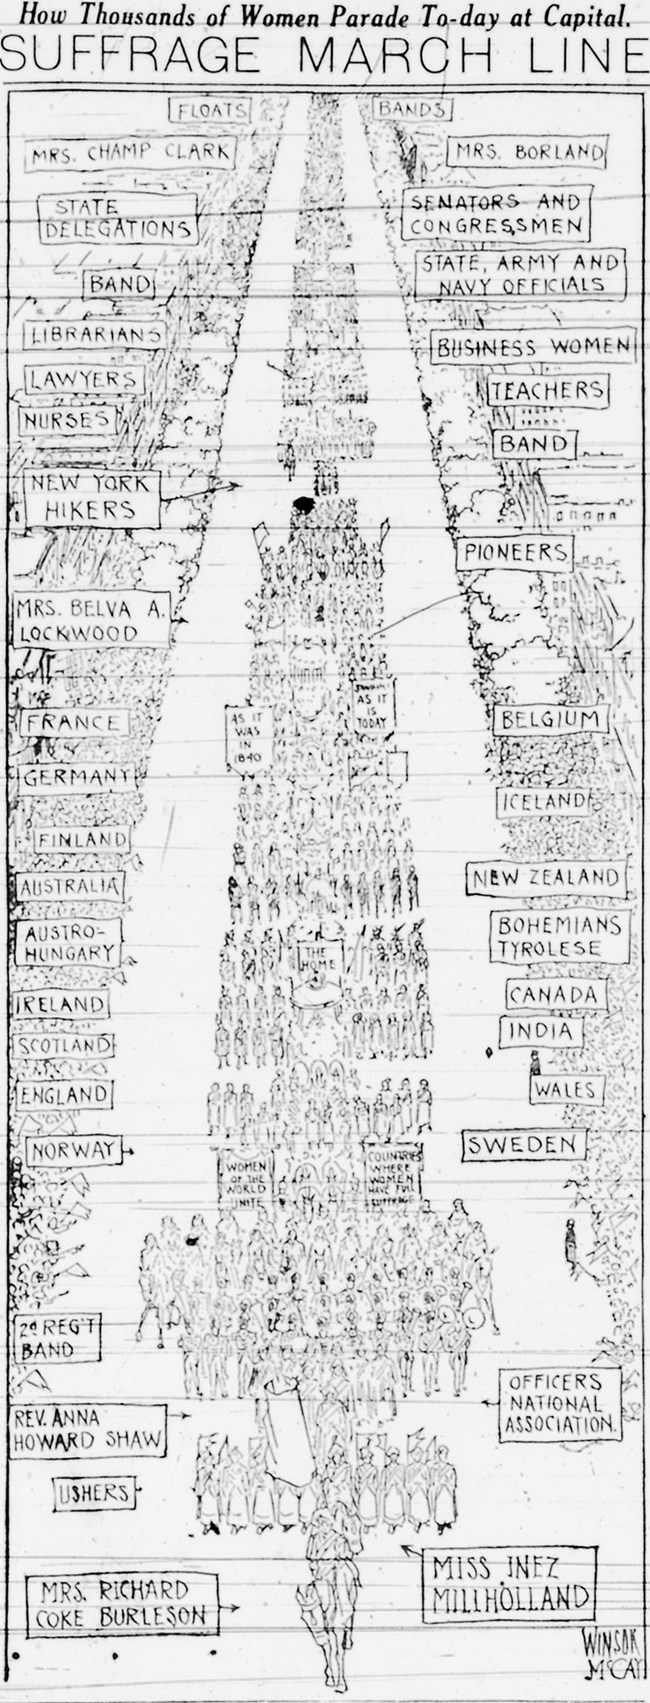 How Thousands of Women Parade To-day at Capital.
SUFFRAGE MARCH LINE
FLOATS
BANDS
MRS. CHAMP CLARK
MRS. BORLAND
STATE
DELEGATIONS
SENATORS AND
CONGRESSMEN
BAND
STATE, ARMY AND
NAVY OFFICIALS
LIBRARIANS
BUSINESS WOMEN
LAWYERS
TEACHERS
NURSES
BAND
NEW YORK
HIKERS
PIONEERS
MRS. BELVA A.
LOCKWOOD
AS IT
WAS
IN
1840
AS IT
IS
TODAY
FRANCE
BELGIUM
GERMANY
ICELAND
FINLAND
AUSTRALIA
NEW ZEALAND
AUSTRO-
HUNGARY
THE
HOME
BOHEMIANS
TYROLESE
IRELAND
CANADA
SCOTLAND
INDIA
ENGLAND
WALES
NORWAY
SWEDEN
WOMEN
OF THE
WORLD
UNITE
COUNTRIES
WHERE
WOMEN
HAVE FULL
SUFFRAGE
2d REG'T
BAND
OFFICERS
NATIONAL
ASSOCIATION.
REV. ANNA
HOWARD SHAW
USHERS
MISS INEZ
MILLHOLLAND
MRS. RICHARD
COKE BURLESON
WINSOR
McCAY